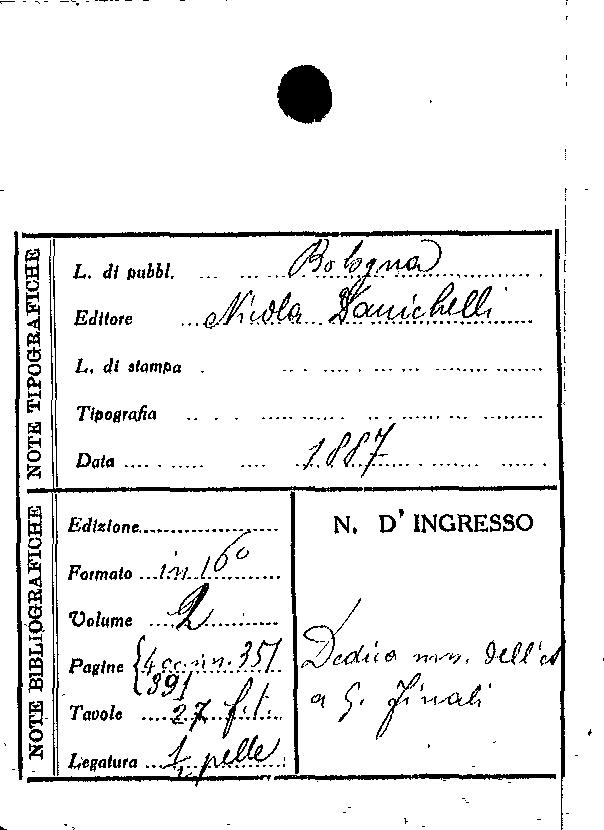 NOTE TIPOGRAFICHE
L. di pubbl. Bologna
Editore Nicola Zanichelli
L. di stampa
Tipografia
Data 1887
NOTE BIBLIOGRAFICHE
Edizione
Formato in 16º
Volume 2
Pagine {4 cc. nn. 351
{391
Tavole 27 f.t.
Legatura 1/2 pelle
N. D'INGRESSO
Dedica ms. dell'
a G. Finali